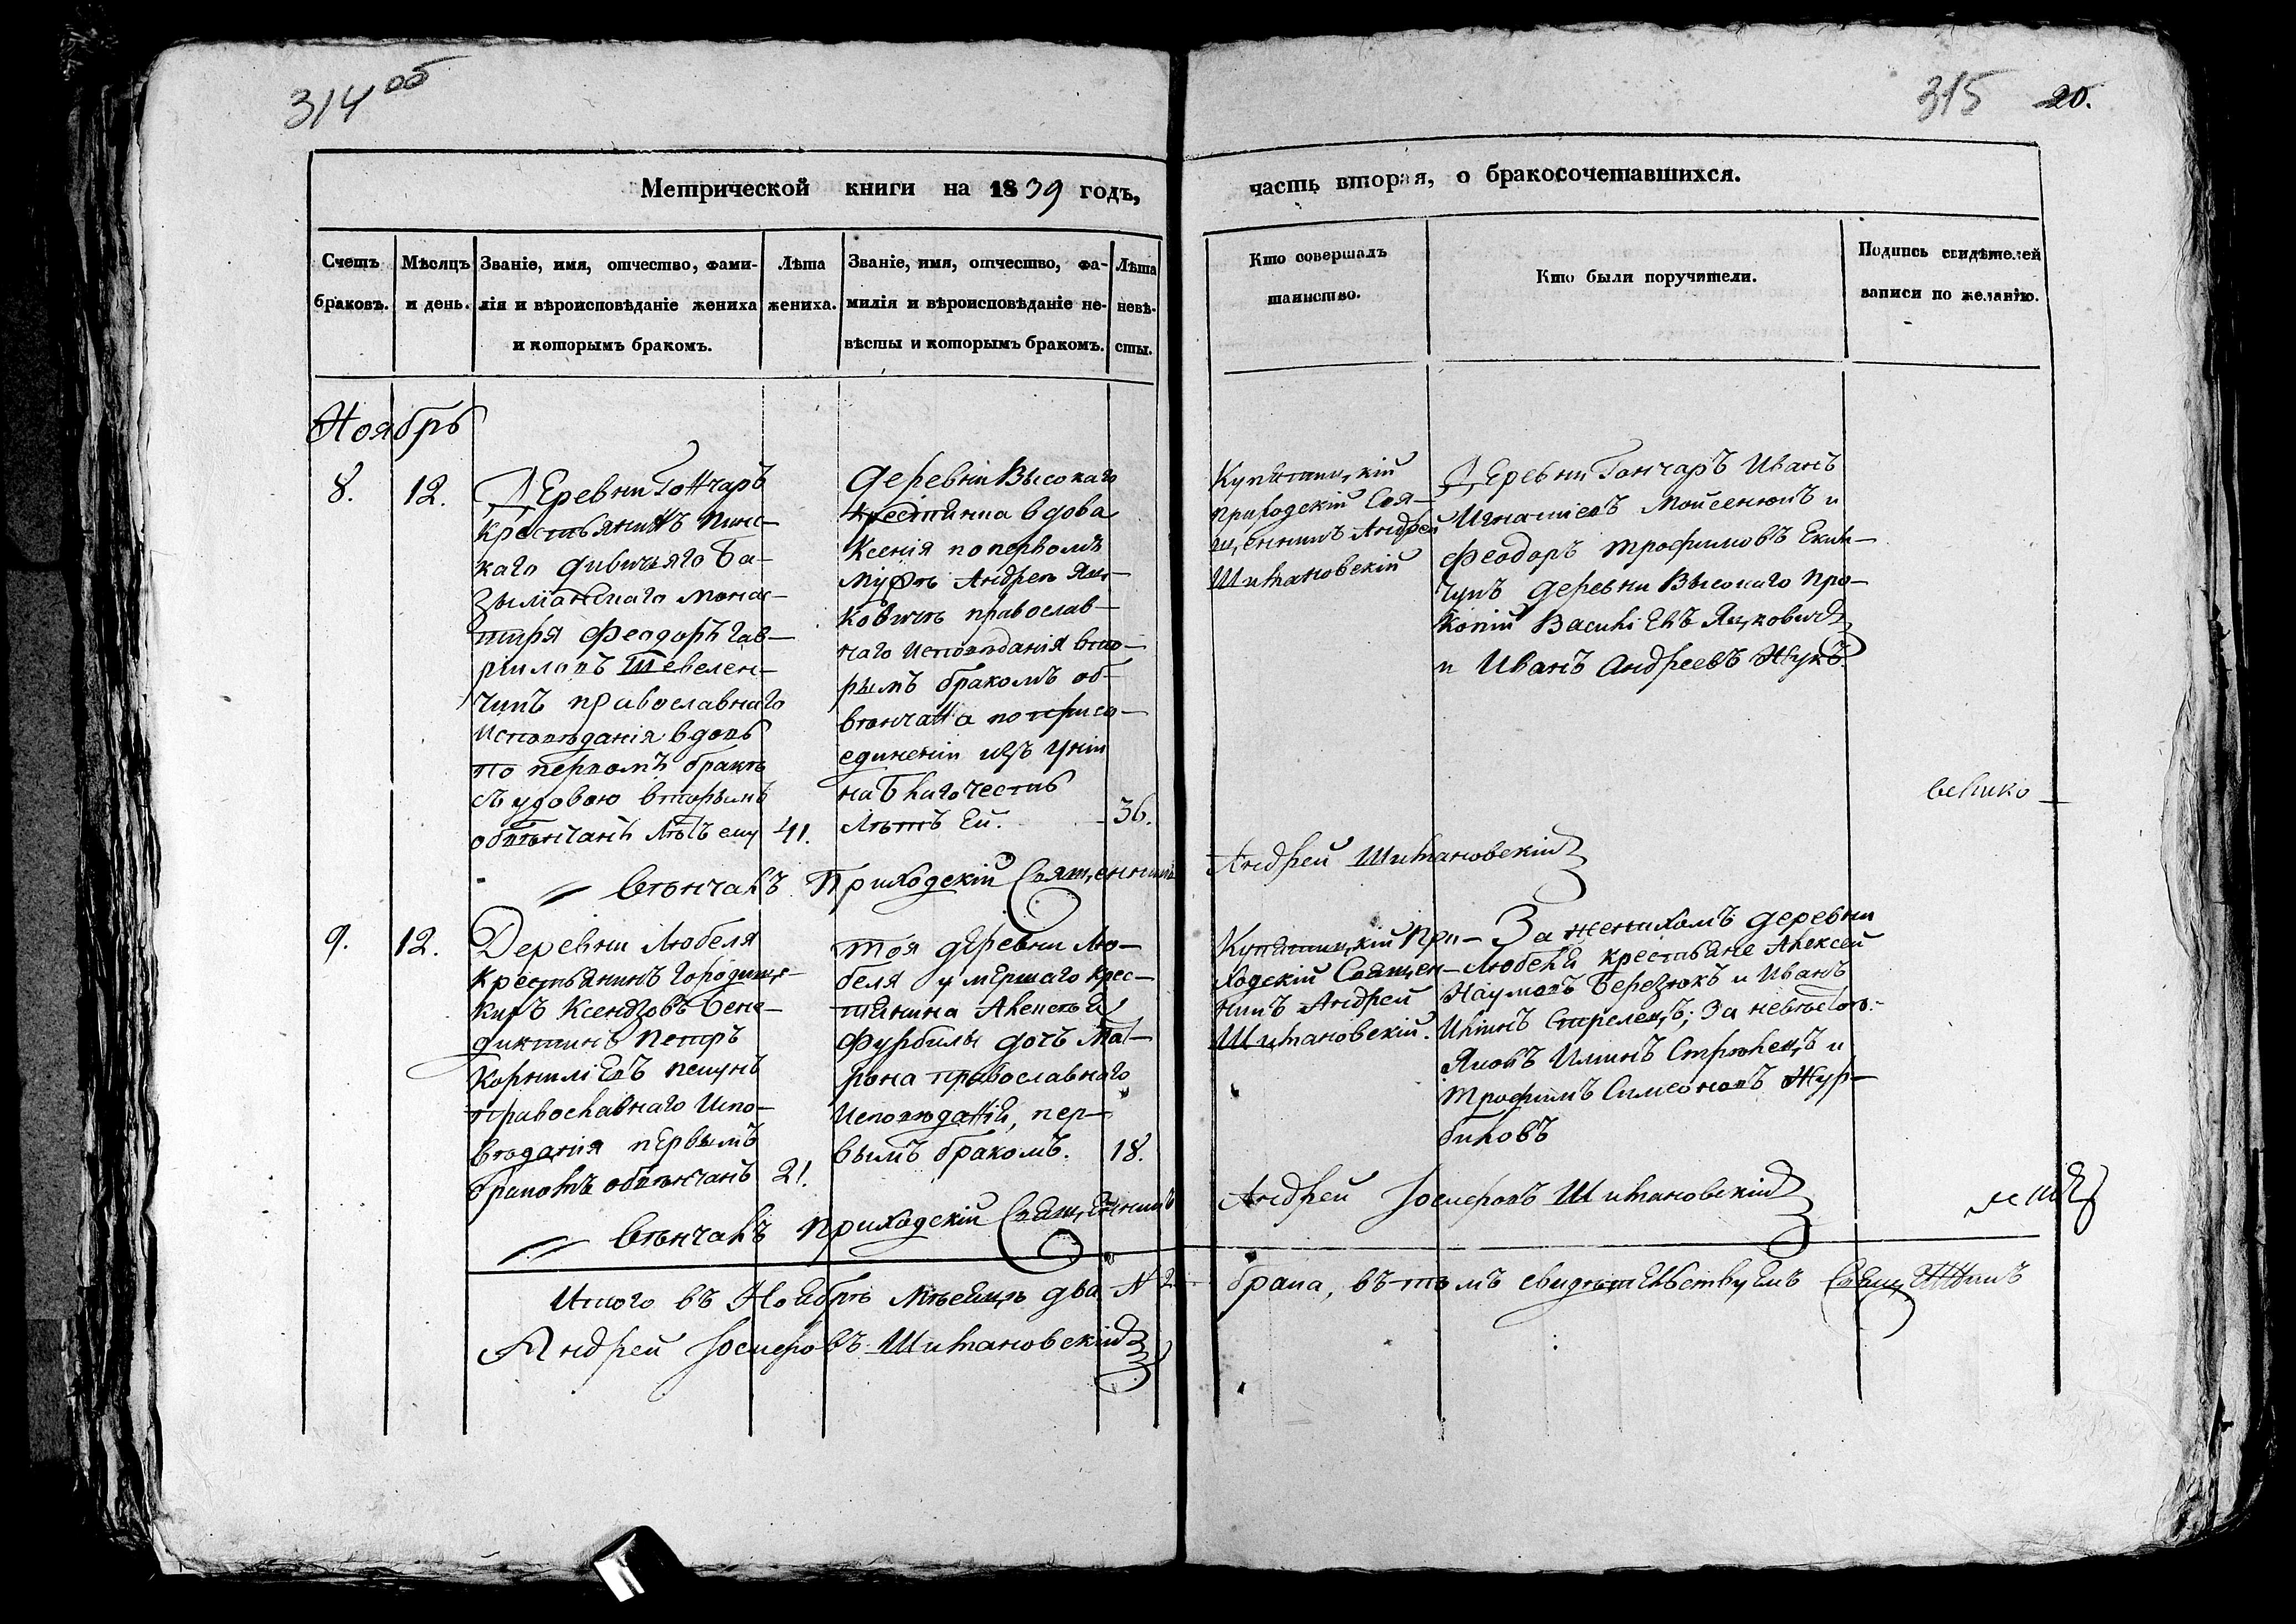 314 об
315 20.
Метрической книги на 1839 годъ,
часть вторая, о бракосочетавшихся.
Счетъ браковъ.
Мѣсяцъ и день.
Званіе, имя, отчество, фами-
лія и вѣроисповѣданіе жениха
и которымъ бракомъ.
Лѣта
жениха.
Званіе, имя, отчество, фа-
милія и вѣроисповѣданіе не-
вѣсты и которымъ бракомъ.
Лѣта
невѣ-
сты.
Кто совершалъ
таинство.
Кто были поручители.
Подпись свидѣтелей
записи по желанію.
Ноябрь
8.
12.
Деревни Гончаръ
крестьянинъ Пинс-
каго
монас-
тыря Феодоръ Гав-
риловъ Шевелен-
чукъ православнаго
исповѣданія вдовъ
по первомъ бракѣ
вторымъ
обвѣнчанъ лѣтъ ему
41.
Деревни Высокаго
крестьянка вдова
Ксенія по первомъ
мужѣ Андреѣ Яц-
ковичѣ православ-
наго исповѣданія вто-
рымъ бракомъ об-
вѣнчана по присо-
единеніи изъ уніи
на благочестъ
лѣтъ ей.
36.
приходскій Свя-
щенникъ Андрей
Шимановскій
Деревни Гончаръ Иванъ
Игнатіевъ Мойсенюкъ и
Феодоръ Трофимовъ
деревни Высокаго Про-
копій Василіевъ Яцковичъ
и Иванъ Андреевъ Жукъ
велико
Вѣнчалъ Приходскій Священникъ
Андрей Шимановскій
9.
12.
Деревни Любеля
крестьянинъ Городищс-
кихъ Ксендзовъ Бене-
диктинъ Петръ
Корниліевъ
православнаго испо-
вѣданія первымъ
бракомъ обвѣнчанъ
21.
Тоя деревни Лю-
беля умершаго крес-
тянина Алексѣя
дочь Мат-
рона православнаго
исповѣданія, пер-
вымъ бракомъ.
18.
При-
ходскій Священ-
никъ Андрей
Шимановскій.
За женихомъ деревни
Любеля крестьяне Алексей
Наумовъ Березюкъ и Иванъ
Илiинъ Стрелецъ; за невѣстою:
Яковъ Илiинъ Стрѣлецъ и
Трофимъ Симеоновъ Жур-
биловъ
Вѣнчалъ приходскій Священникъ
Андрей Іосифовъ Шимановскій
Итого въ Ноябрѣ мѣсяцѣ два № 2
брака, въ томъ свидѣтельствуемъ Священникъ
Андрей Іосифовъ Шимановскій